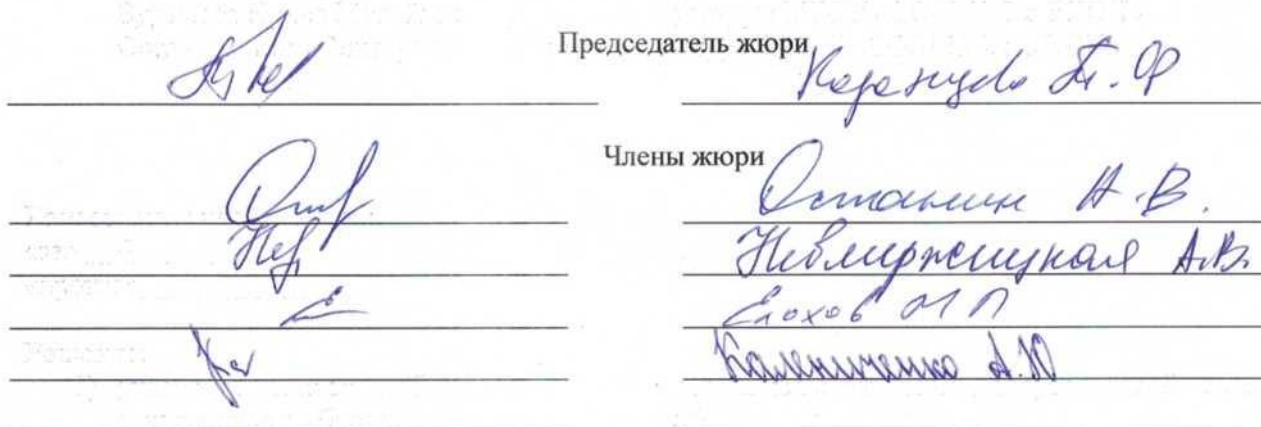 Председатель жюри
Казанцева Т. Ф
Члены жюри
Останин А.В.
Невмержицкая А.В.
Елохов И П
Калениченко А.Ю